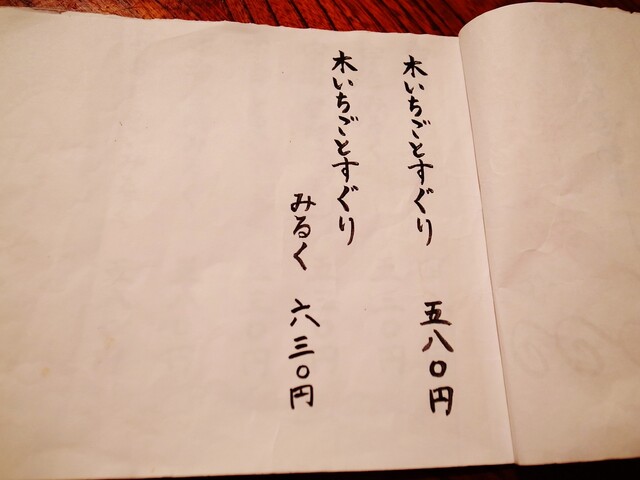 木いちごとすぐり 五八〇円
木いちごとすぐり
みるく 六三〇円